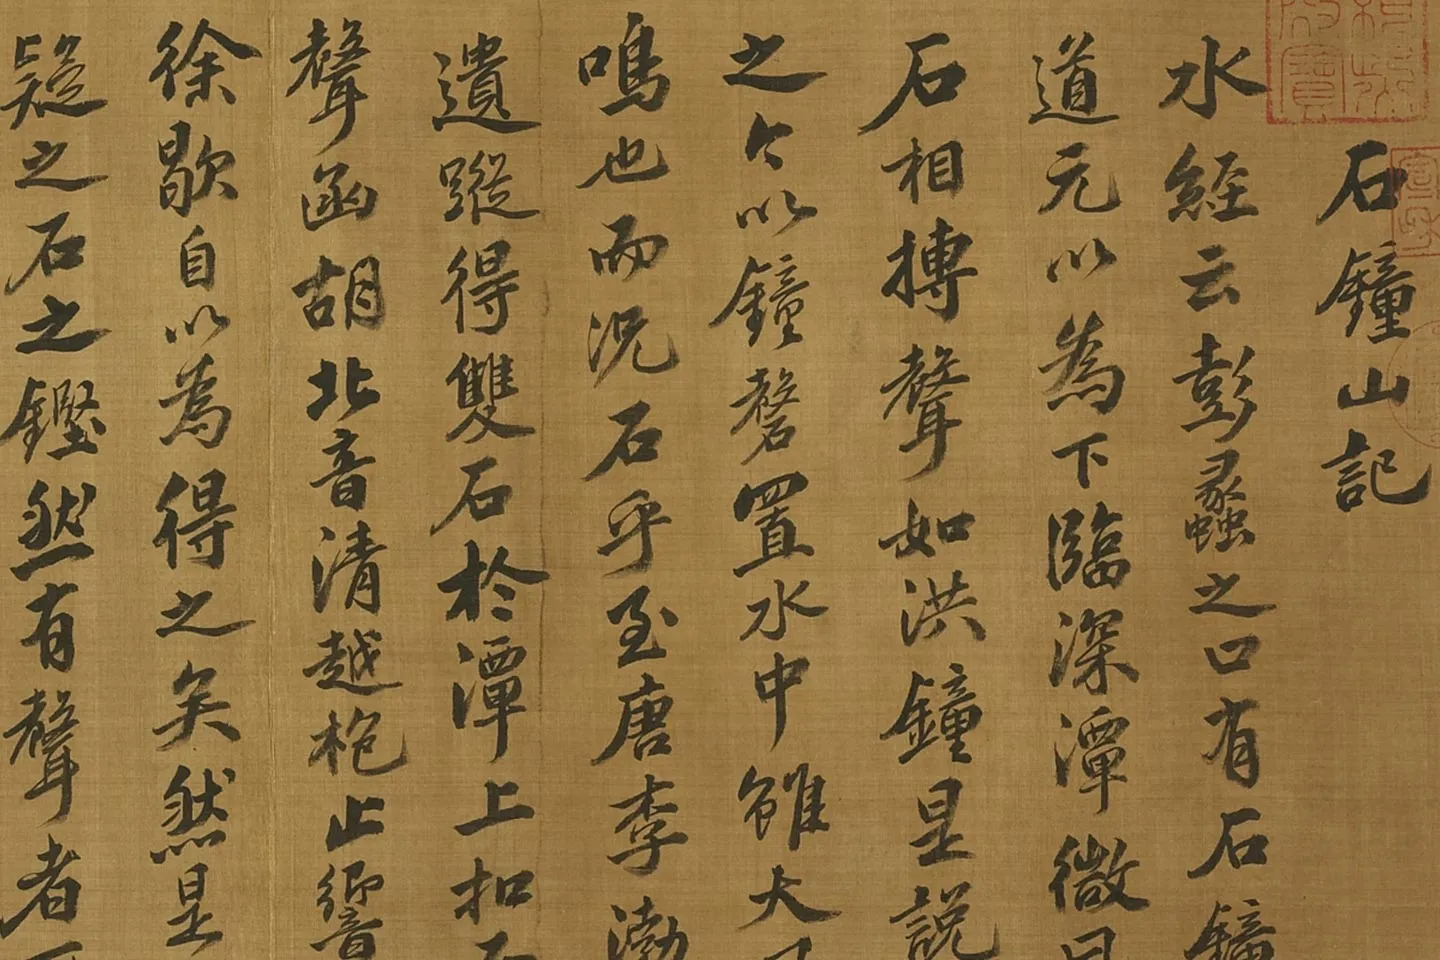 石鐘山記
水經云彭蠡之口有石鐘
道元以為下臨深潭微
石相搏聲如洪鐘是說
之今以鐘磬置水中雖大
鳴也而況石乎至唐李渤
遺蹤得雙石於潭上扣
聲函胡北音清越枹止響
徐歇自以為得之矣然是
疑之石之鏗然有聲者